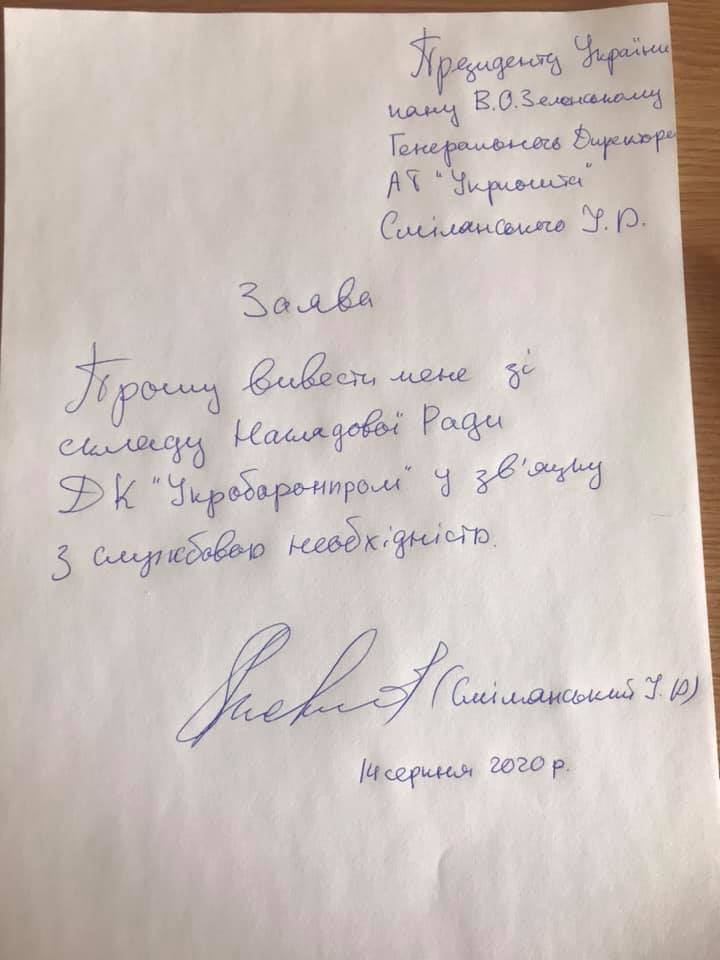 Президенту України
пану В.О.Зеленському
Генерального Директора
АТ "Укрпошта"
Смілянського І. Ю.
Заява
Прошу вивести мене зі
складу Наглядової Ради
ДК "Укроборонпром" у зв'язку
з службовою необхідністю.
(Смілянський І. Ю)
14 серпня 2020 р.